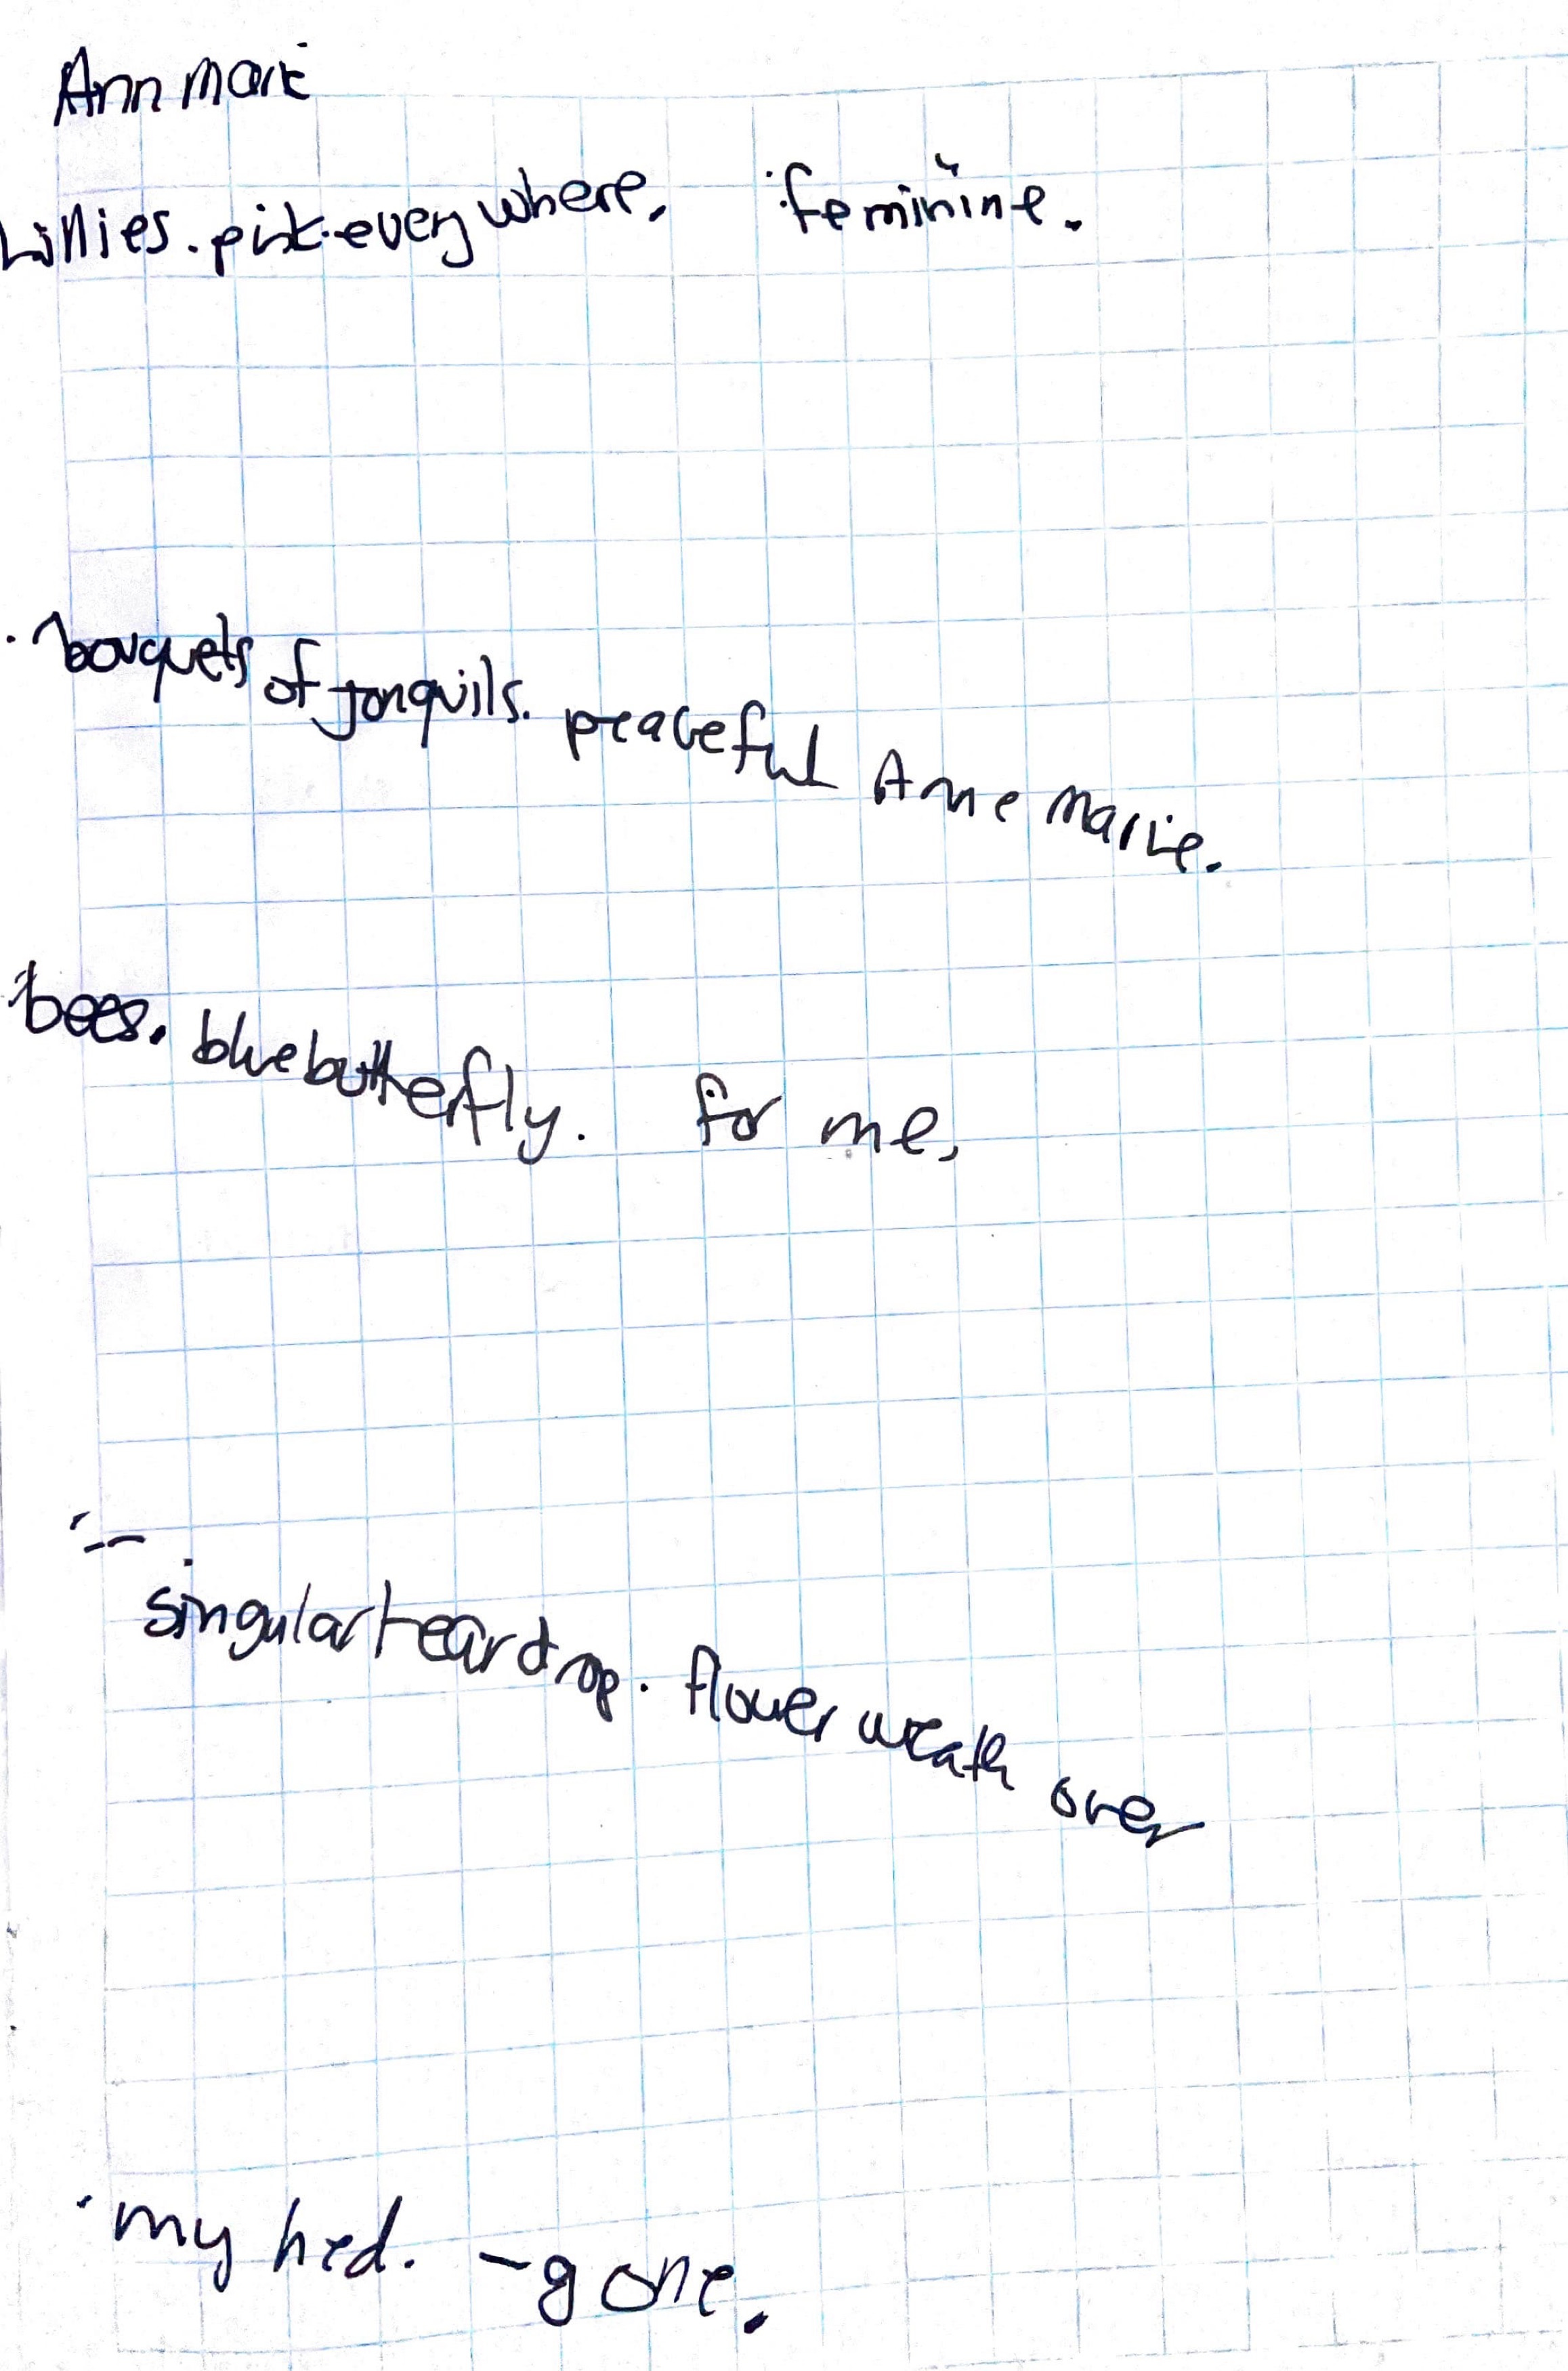 Ann Marie
Lillies. pink. everywhere. feminine.
bouquets of jonquils. peaceful Anne Marie.
bees. blue butterfly. for me,
singular teardrop. flower wreath over
my hed. - gone.